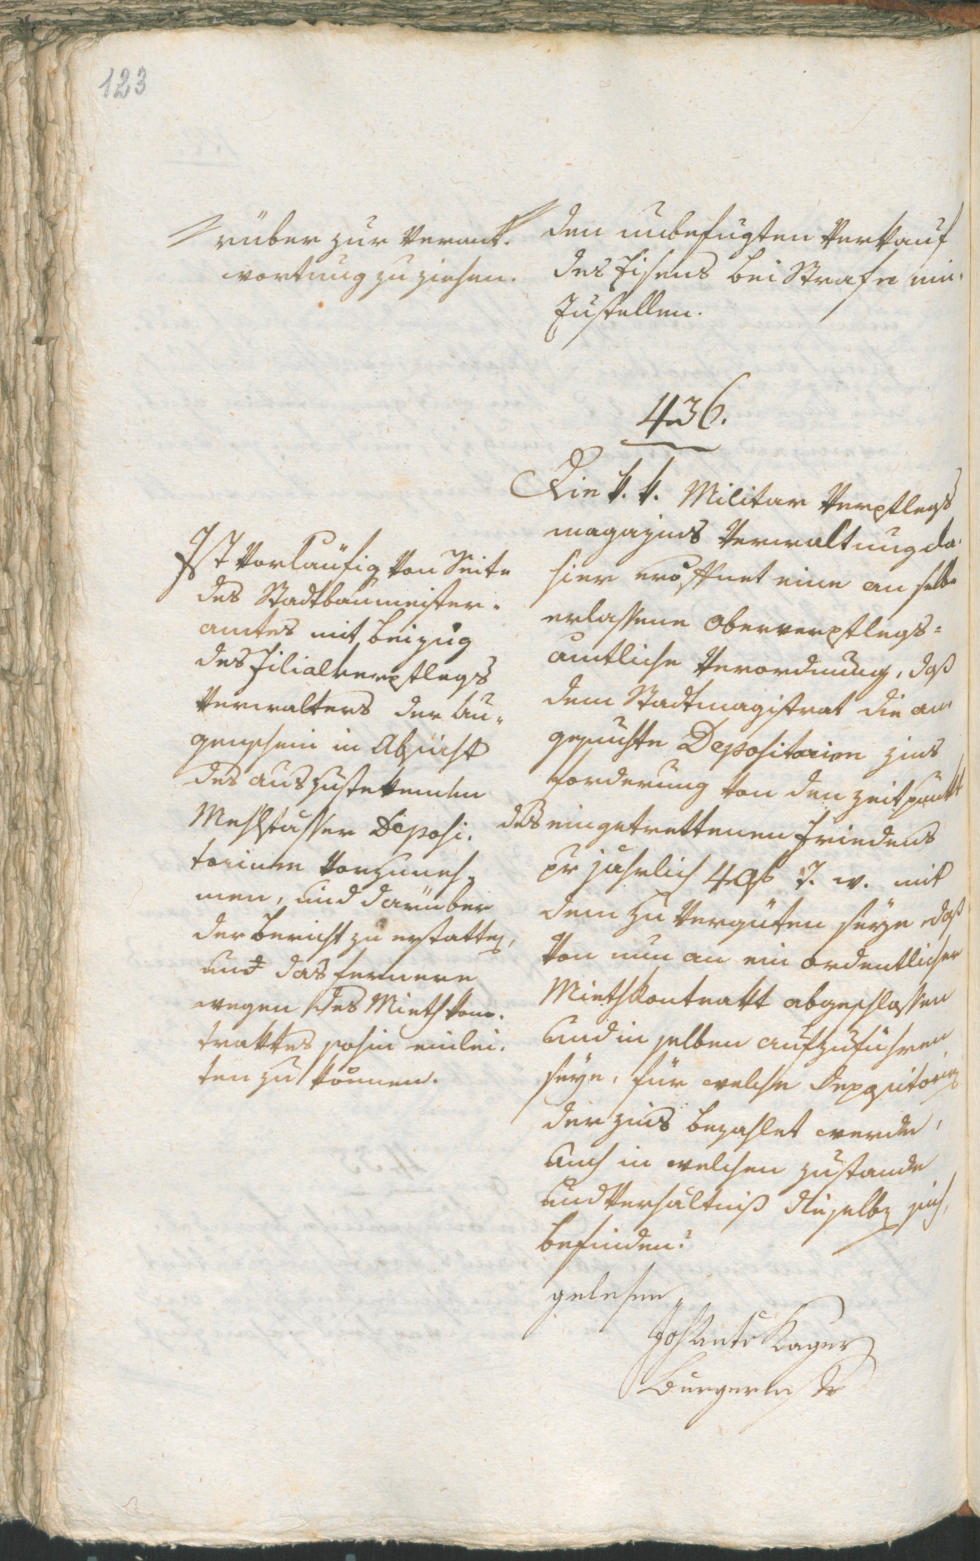 123
rüber zur Verant-
wortung zu ziehen.
den unbefugten Verkauf
des Eisens bei Strafe ein-
zustellen.
436.
Die k. k. Militar Verpflegs
magazins Verwaltung da-
hier eröffnet eine an selbe
erlassene Oberverpflegs-
amtliche Verordnung, daß
dem Stadtmagistrat die an-
gesuchte Depositorien Zins
forderung von den Zeitpunkt
des eingetrettenen Friedens
pr jährlich 496 f. w. mit
dem zu vergüten seye daß
von nun an ein ordentlicher
Miethskontrakt abgeschlossen
und in selben aufzuführen
seye, für welche Depositorien
der Zins bezahlet werde,
auch in welchen Zustande
und Verhältniß dieselben sich
befinden.
Ist vorläufig von Seite
des Stadtbaumeister-
amtes mit Beizug
des Filialverpflegs
Verwalters der Au-
genschein in Absicht
des auszusteckenden
Mehlfässer Deposi-
torium vorzuneh-
men, und darüber
der Bericht zu erstatten,
und das fernere
wegen des Miethskon-
traktes sohin einlei-
ten zu können.
gelesen
Kager
Burgermstr